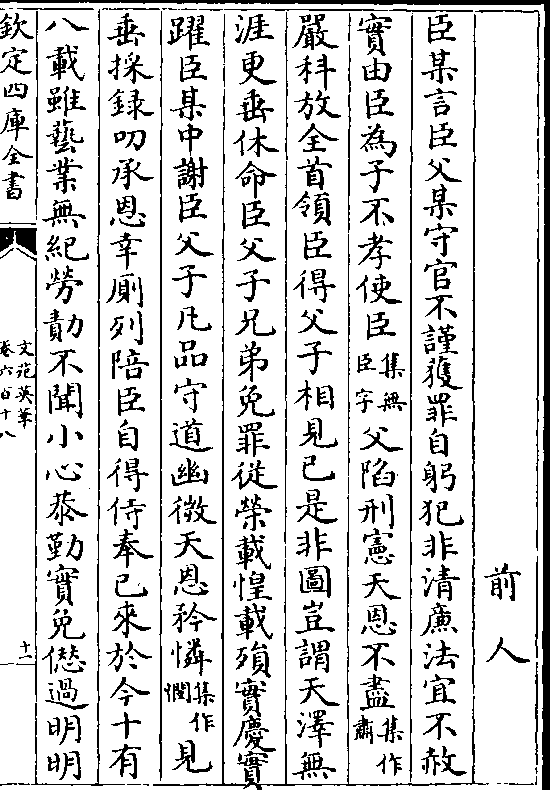 前人
臣某言臣父某守官不謹獲罪自躬犯非清亷法宜不赦
實由臣為子不孝使臣集無臣字父陷刑憲天恩不盡集作肅
嚴科放全首領臣得父子相見已是非圖豈謂天澤無
涯更垂休命臣父子兄弟免罪從榮載惶載殞實慶實
躍臣某中謝臣父子凡品守道幽微天恩矜憐集作憫見
垂採録叨承恩幸厠列陪臣自得侍奉已來於今十有
八載雖藝業無紀勞勣不聞小心恭勤實免僽過明明
欽定四庫全書
文苑英華
卷六百十八
十一